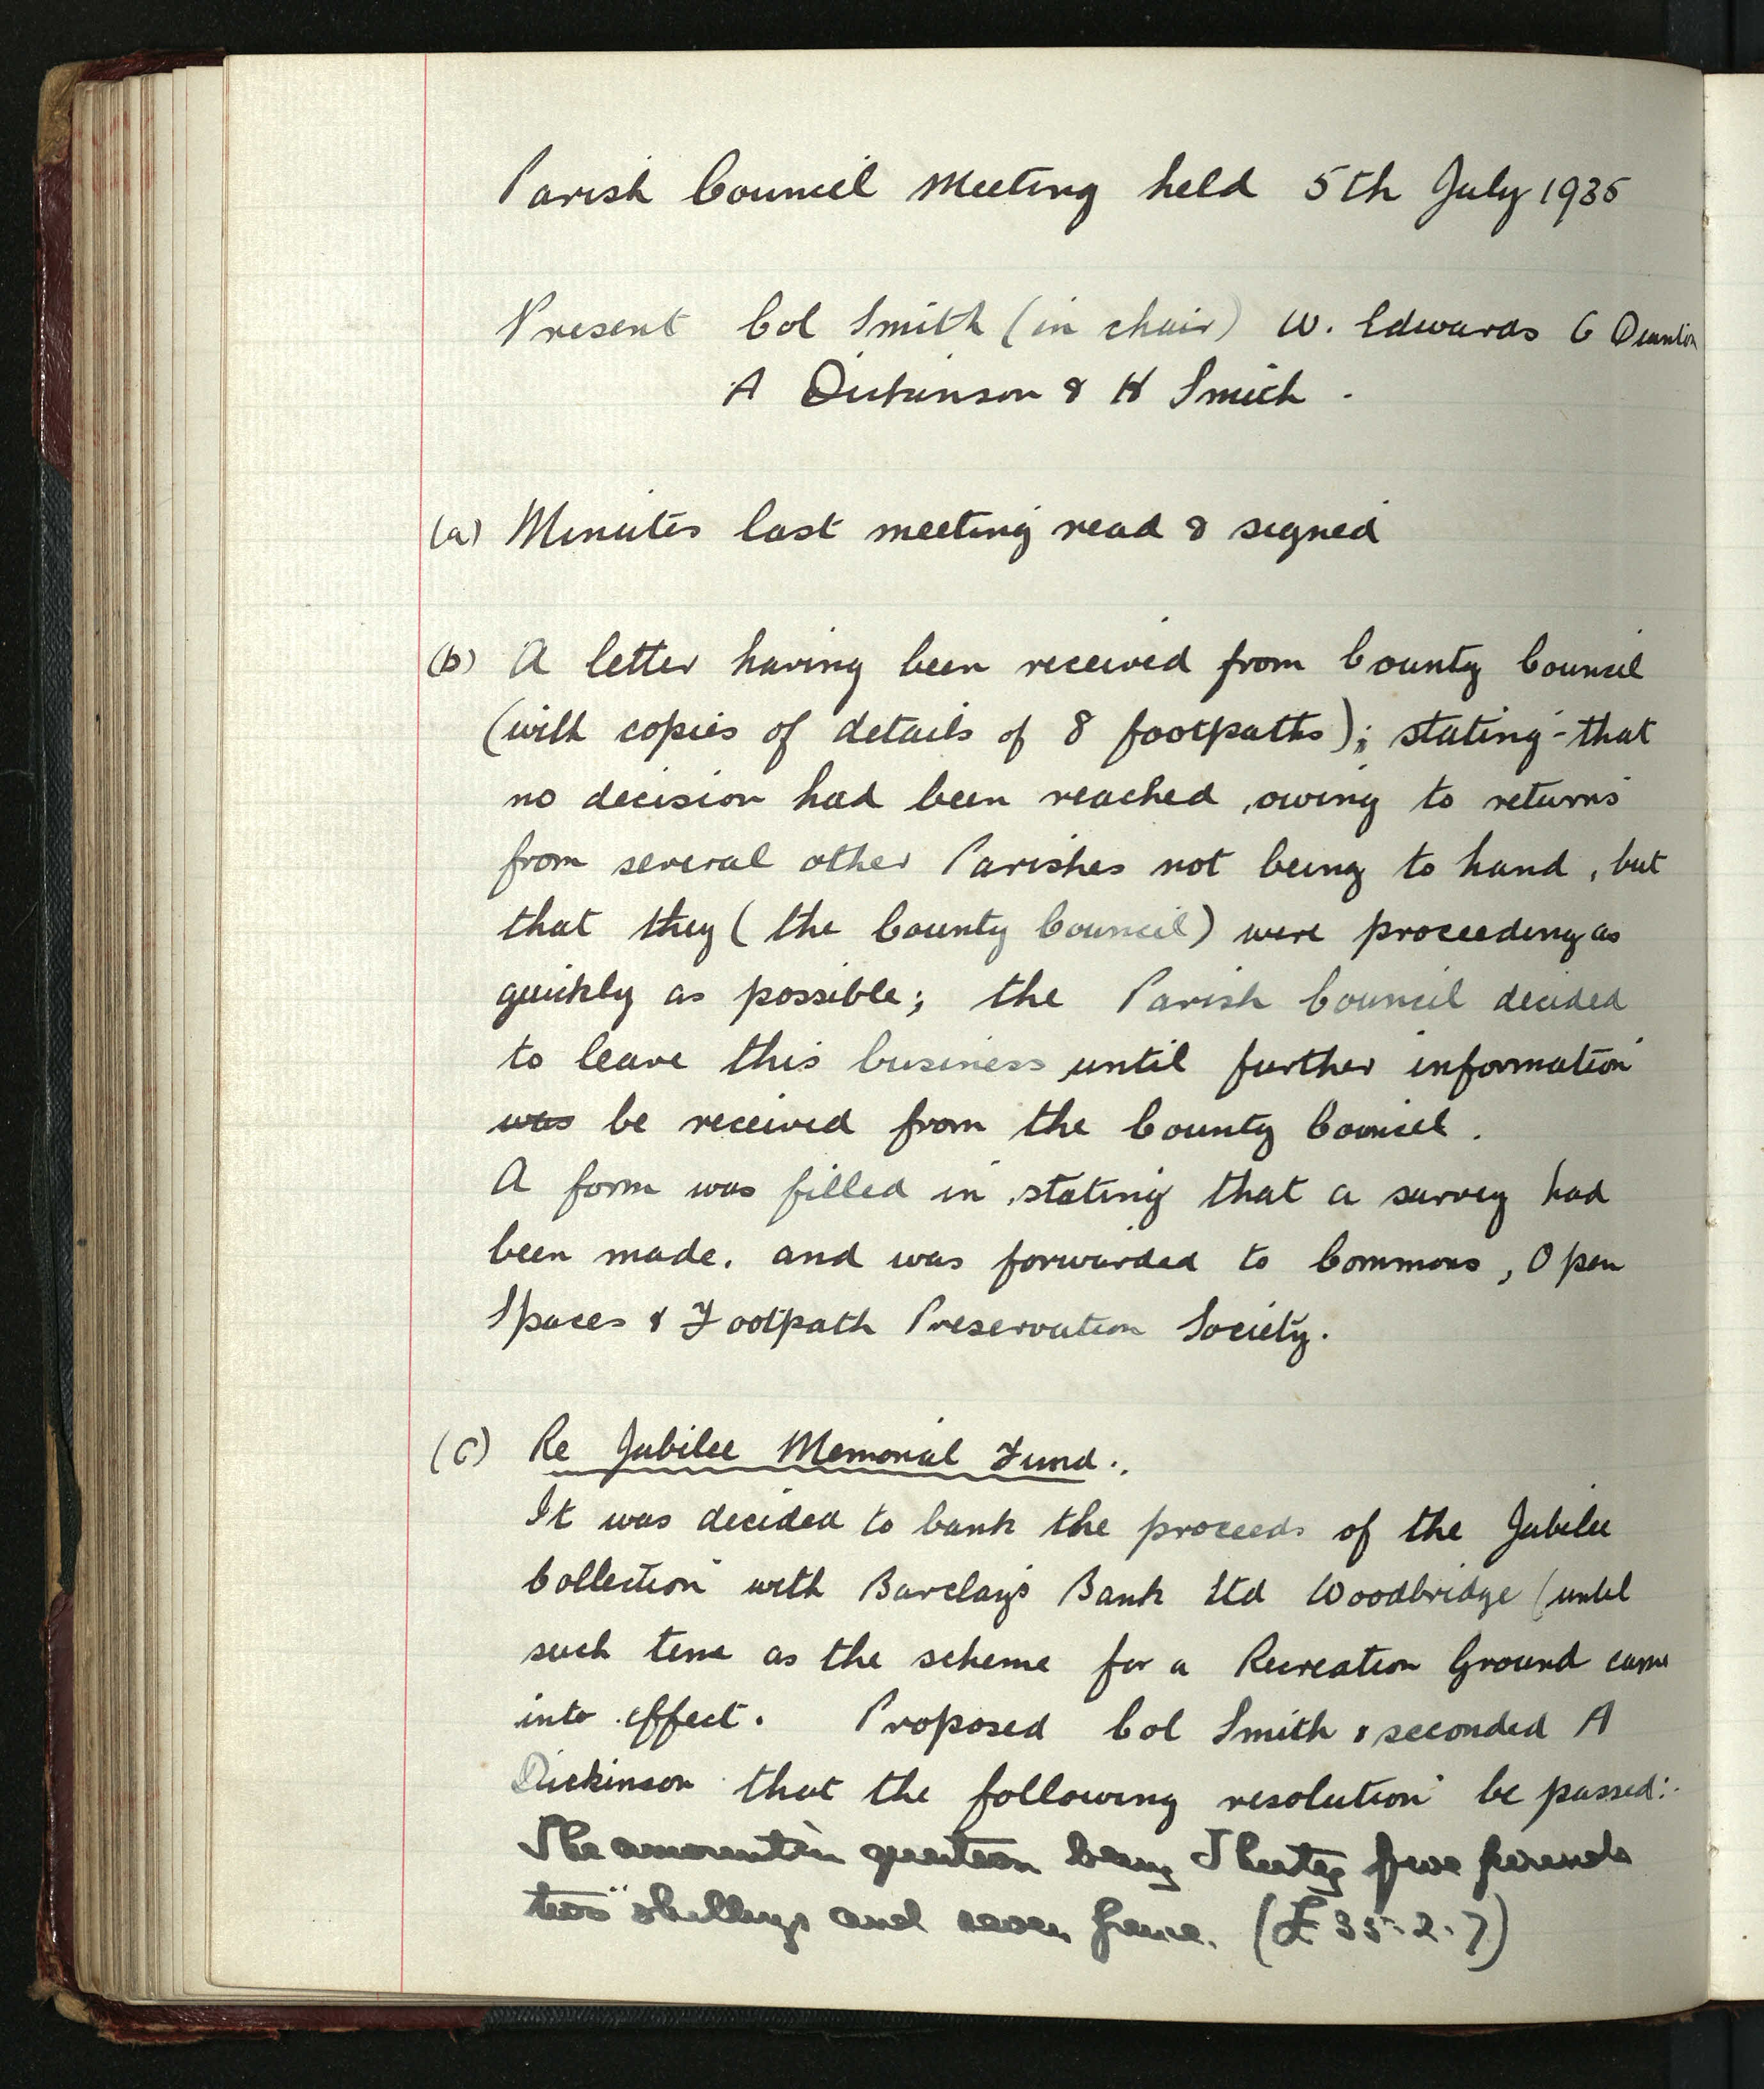 Parish Council Meeting held 5th July 1935
Present Col Smith (in chair) W. Edwards G
A Dickinson & H Smith .
(a) Minutes last meeting read & signed
(b) A letter having been received from County Council
(with copies of details of 8 footpaths); stating that
no decision had been reached, owing to returns
from several other Parishes not being to hand, but
that they (the County Council) were proceeding as
quickly as possible; the Parish Council decided
to leave this business until further information
was be received from the County Council.
A form was filled in, stating that a survey had
been made. and was forwarded to Commons, Open
Spaces & Footpath Preservation Society.
(C) Re Jubilee Memorial Fund.
It was decided to bank the proceeds of the Jubilee
Collection with Barclays Bank Ltd Woodbridge (until
such time as the scheme for a Recreation Ground came
into effect. Proposed Col Smith & seconded A
Dickinson that the following resolution be passed:
The amount in question being Thirty five pounds
two shillings and seven pence. (£35-2-7)